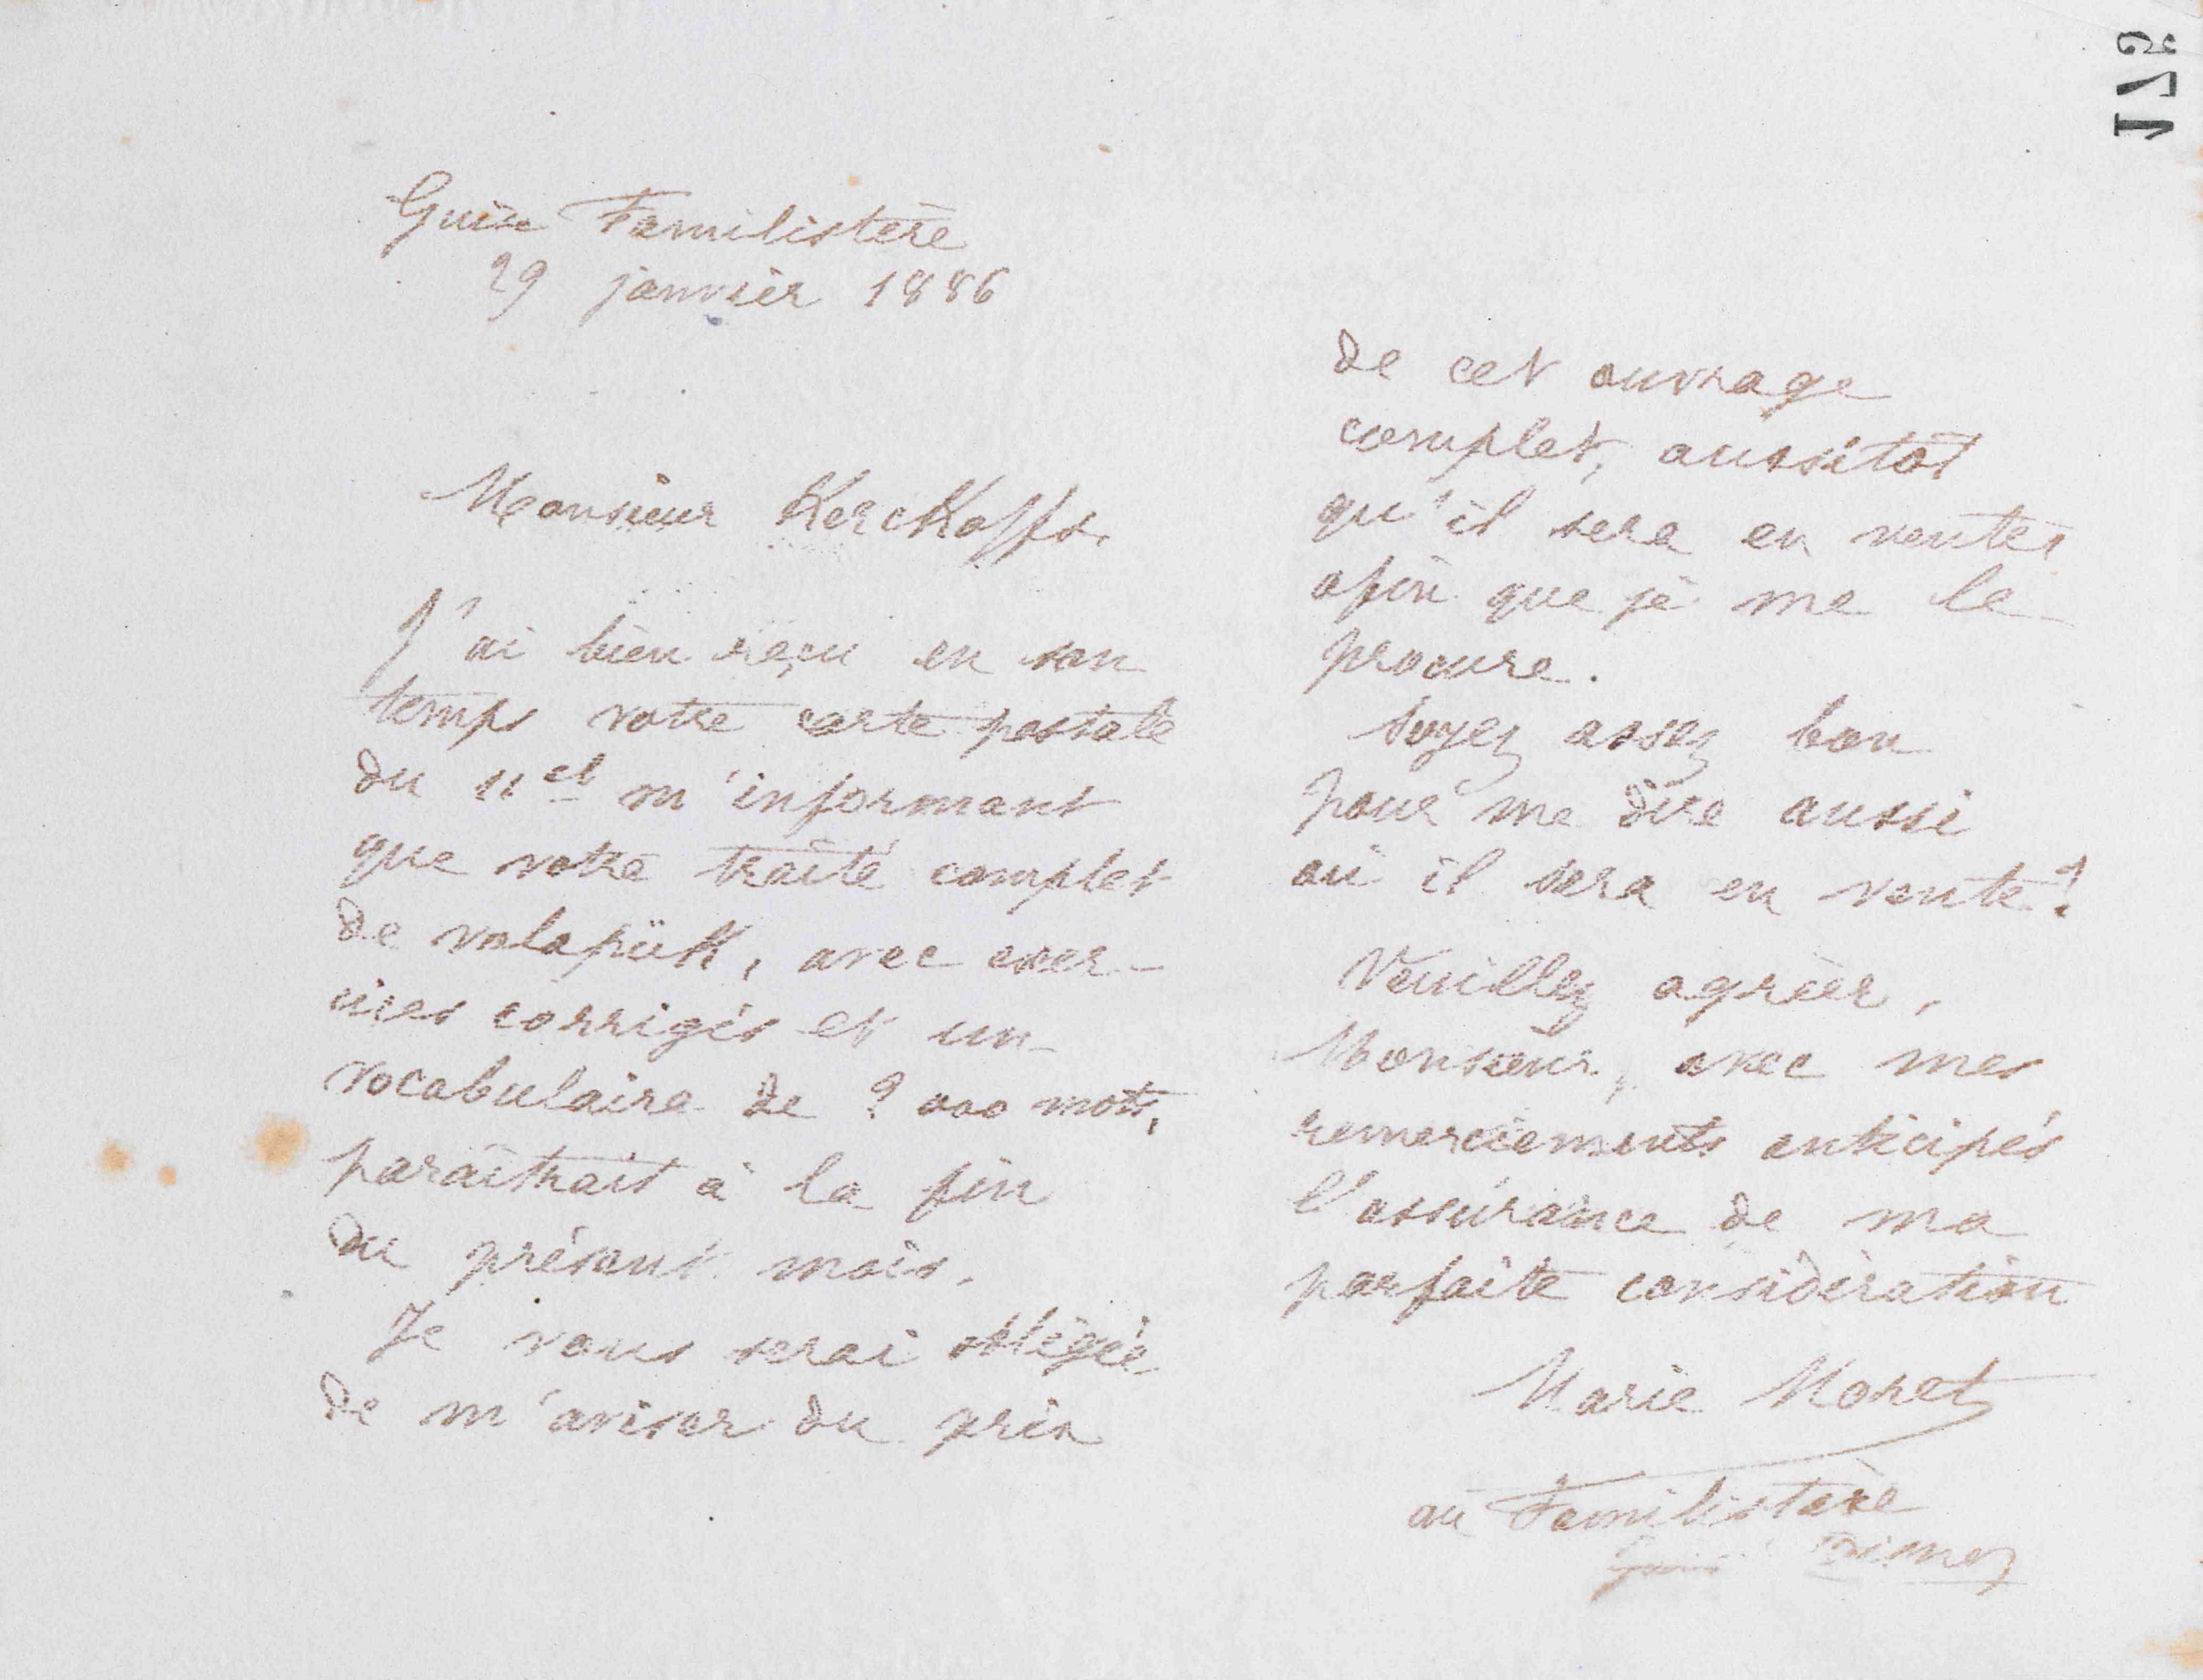 Guise Familistère
29 janvier 1886
Monsieur Kerckoffs.
J'ai bien reçu en son
temps votre carte postale
du 11 ct m'informant
que votre traité complet
de volapük, avec exer-
cices corrigés et un
vocabulaire de ? 000 mots,
paraîtrait à la fin
du présent mois.
Je vous serai obligée
de m'aviser du prix
de cet ouvrage
complet, aussitôt
qu'il sera en vente,
afin que je me le
procure.
Soyez assez bon
pour me dire aussi
où il sera en vente?
Veuillez agréer,
Monsieur, avec mes
remerciements anticipés
l'assurance de ma
parfaite considération
Marie Moret
au Familistère
Guise
122